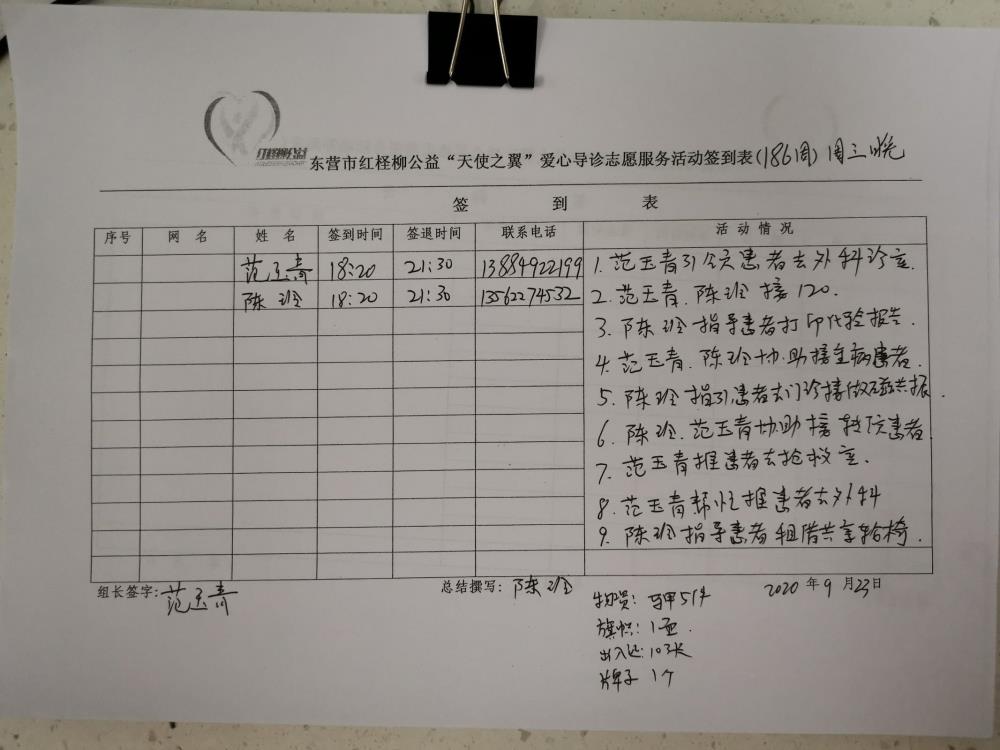 红柽柳公益
东营市红柽柳公益“天使之翼”爱心导诊志愿服务活动签到表(186周) 周三晚
签 到 表
序号 网 名 姓 名 签到时间 签退时间 联系电话 活 动 情 况
范玉青 18:20 21:30 13884922199
陈玲 18:20 21:30 13562274532
1. 范玉青引领患者去外科诊室.
2. 范玉青.陈玲接120.
3. 陈玲指导患者打印化验报告.
4. 范玉青.陈玲协助接重病患者.
5. 陈玲指引患者去门诊楼做磁共振.
6. 陈玲.范玉青协助接转院患者
7. 范玉青推患者去抢救室.
8. 范玉青帮忙推患者去外科
9. 陈玲指导患者租借共享轮椅.
组长签字: 范玉青 总结撰写: 陈玲 2020 年 9 月 23 日
物资: 马甲5件
旗帜: 1面.
出入证: 10张
牌子 1个